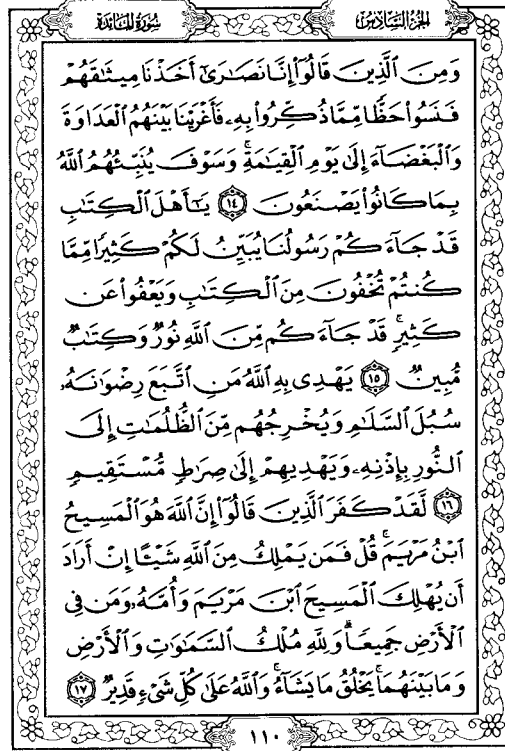 سُورَةُ المَائِدَةِ
الجُزْءُ السَّادِسُ
وَمِنَ ٱلَّذِينَ قَالُوٓا۟ إِنَّا نَصَٰرَىٰٓ أَخَذْنَا مِيثَٰقَهُمْ
فَنَسُوا۟ حَظًّا مِّمَّا ذُكِّرُوا۟ بِهِۦ فَأَغْرَيْنَا بَيْنَهُمُ ٱلْعَدَاوَةَ
وَٱلْبَغْضَآءَ إِلَىٰ يَوْمِ ٱلْقِيَٰمَةِ ۚ وَسَوْفَ يُنَبِّئُهُمُ ٱللَّهُ
بِمَا كَانُوا۟ يَصْنَعُونَ ١٤ يَٰٓأَهْلَ ٱلْكِتَٰبِ
قَدْ جَآءَكُمْ رَسُولُنَا يُبَيِّنُ لَكُمْ كَثِيرًا مِّمَّا
كُنتُمْ تُخْفُونَ مِنَ ٱلْكِتَٰبِ وَيَعْفُوا۟ عَن
كَثِيرٍ ۚ قَدْ جَآءَكُم مِّنَ ٱللَّهِ نُورٌ وَكِتَٰبٌ
مُّبِينٌ ١٥ يَهْدِى بِهِ ٱللَّهُ مَنِ ٱتَّبَعَ رِضْوَٰنَهُۥ
سُبُلَ ٱلسَّلَٰمِ وَيُخْرِجُهُم مِّنَ ٱلظُّلُمَٰتِ إِلَى
ٱلنُّورِ بِإِذْنِهِۦ وَيَهْدِيهِمْ إِلَىٰ صِرَٰطٍ مُّسْتَقِيمٍ
١٦ لَّقَدْ كَفَرَ ٱلَّذِينَ قَالُوٓا۟ إِنَّ ٱللَّهَ هُوَ ٱلْمَسِيحُ
ٱبْنُ مَرْيَمَ ۚ قُلْ فَمَن يَمْلِكُ مِنَ ٱللَّهِ شَيْـًٔا إِنْ أَرَادَ
أَن يُهْلِكَ ٱلْمَسِيحَ ٱبْنَ مَرْيَمَ وَأُمَّهُۥ وَمَن فِى
ٱلْأَرْضِ جَمِيعًا ۗ وَلِلَّهِ مُلْكُ ٱلسَّمَٰوَٰتِ وَٱلْأَرْضِ
وَمَا بَيْنَهُمَا ۚ يَخْلُقُ مَا يَشَآءُ ۚ وَٱللَّهُ عَلَىٰ كُلِّ شَىْءٍ قَدِيرٌ ١٧
١١٠